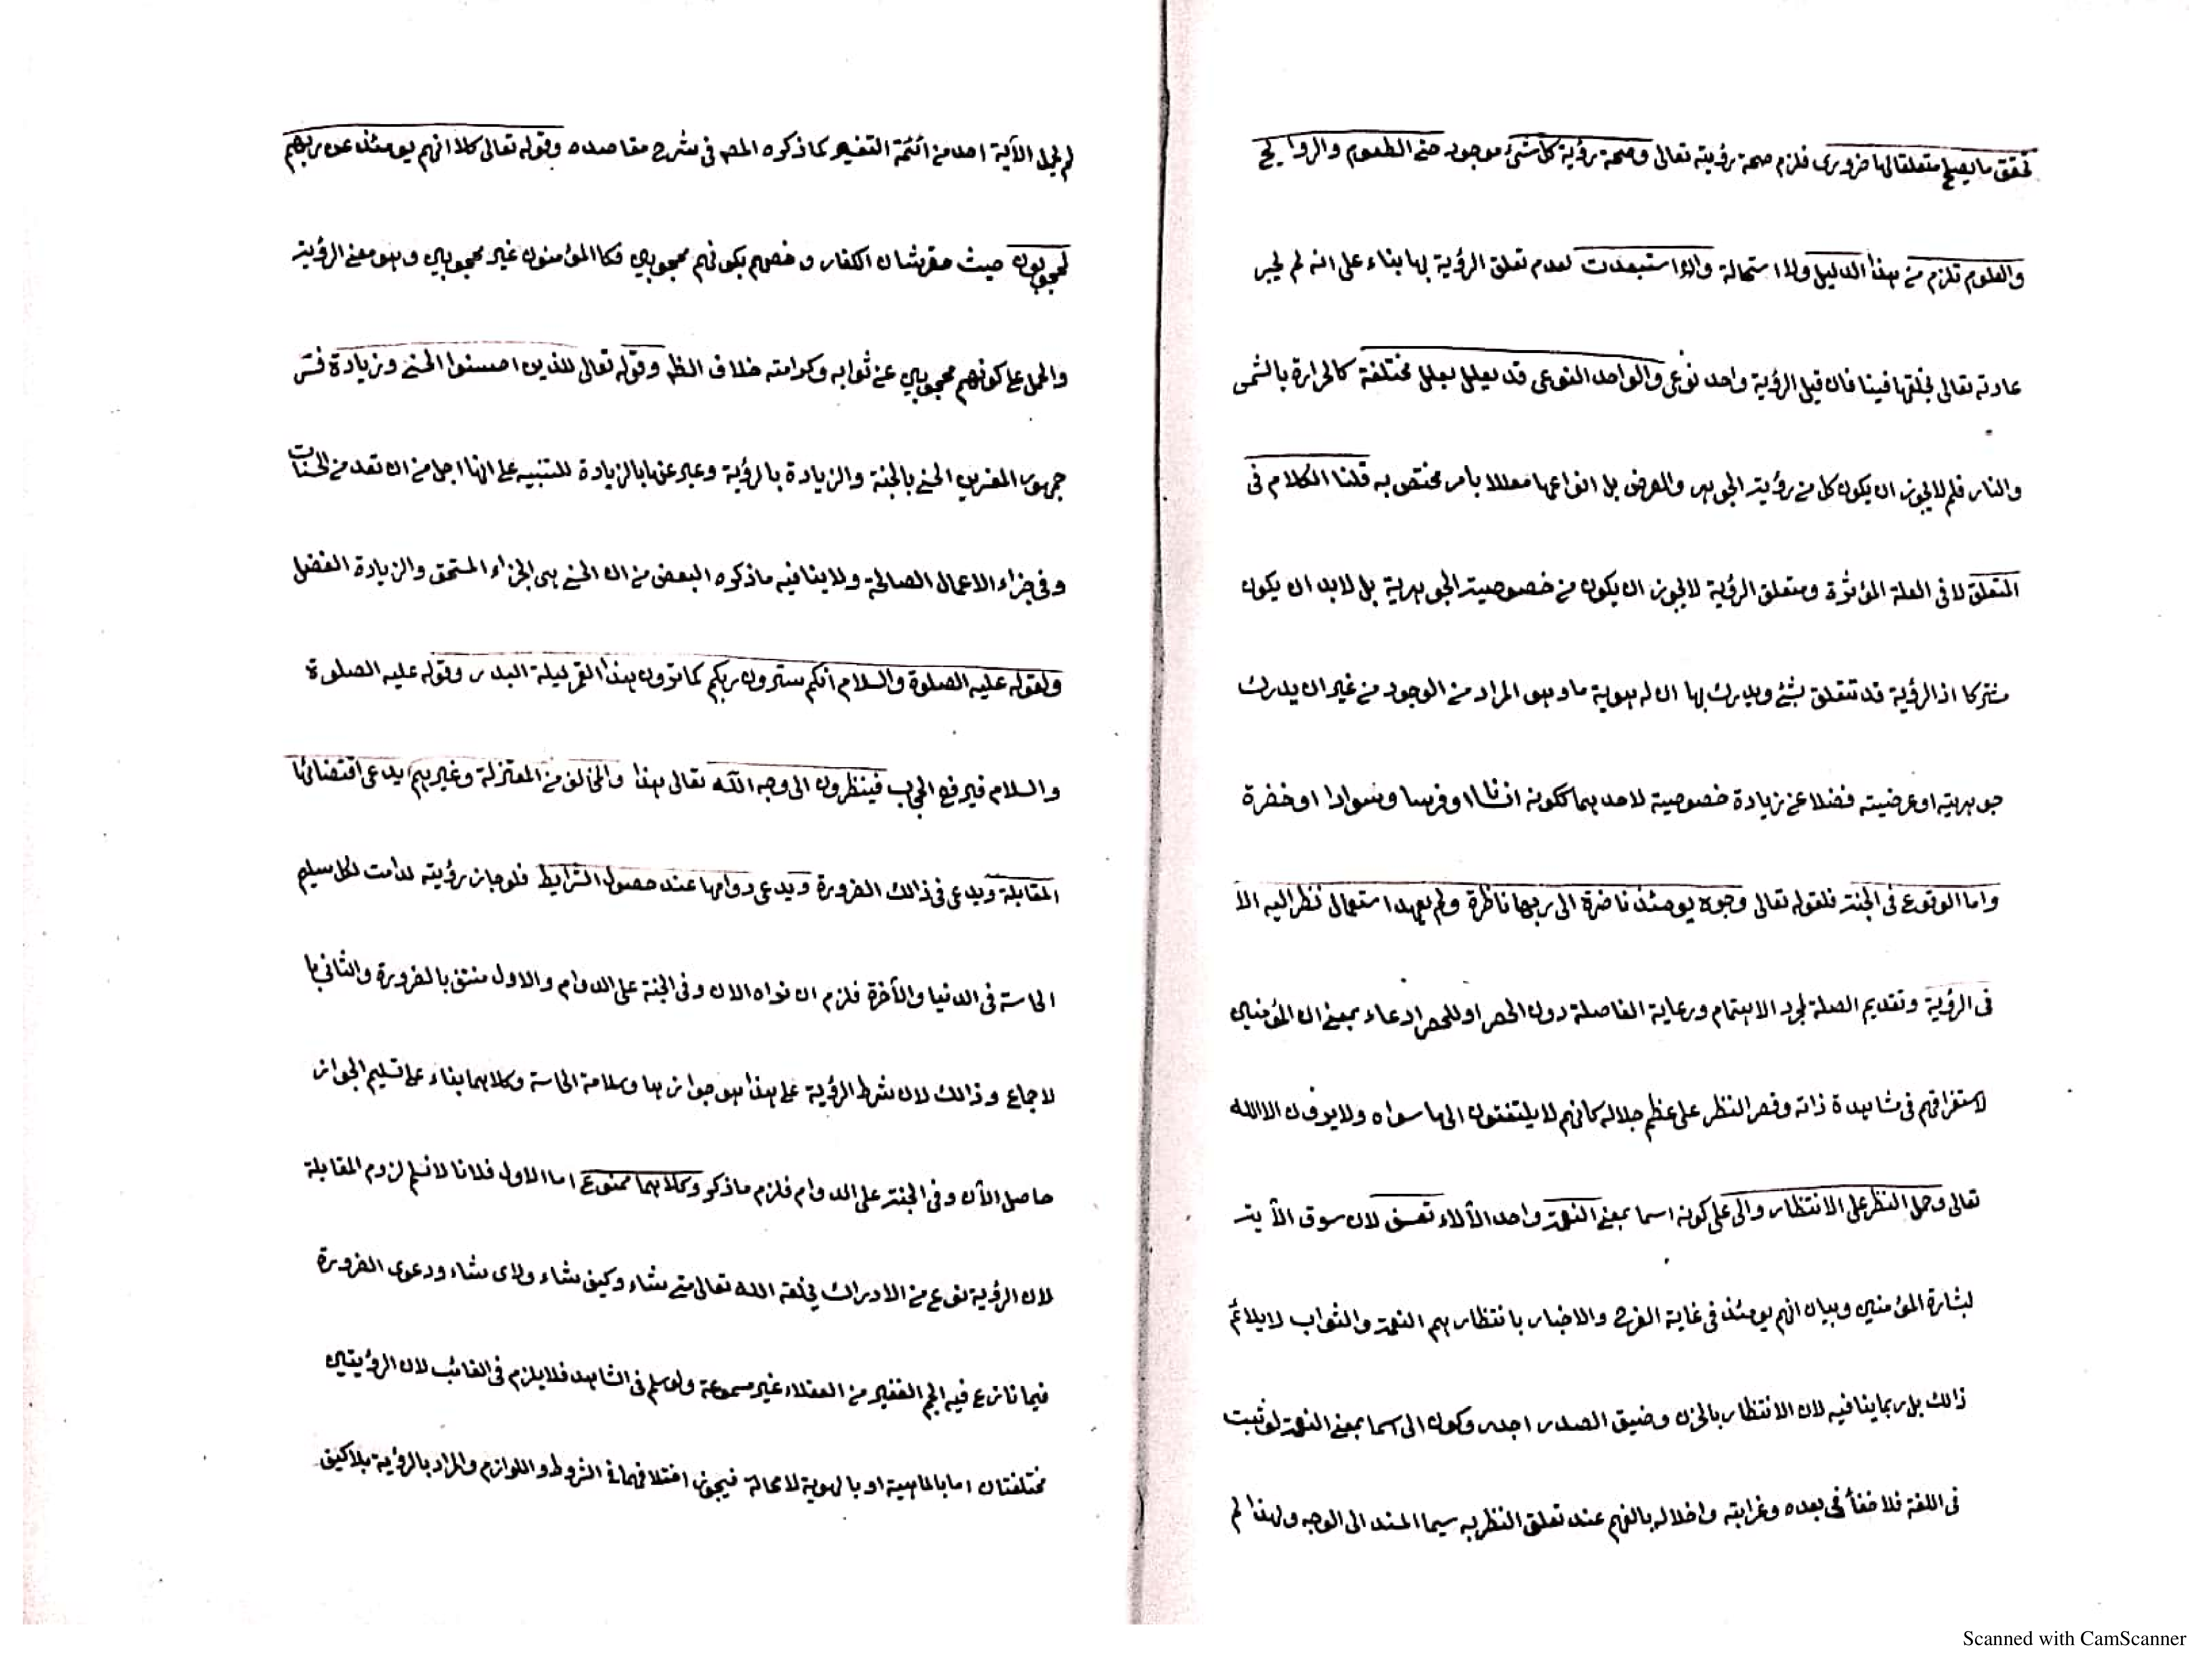 تحقق ما يصلح متعلقا لها ضروري فلزم صحة رؤيته تعالى وصحة رؤية كل شئ موجود حتى الطعوم والروايح
والعلوم تلزم من هذا الدليل ولا استحالة وانما استبعدت لعدم تعلق الرؤية بها بناء على انه لم يجر
عادته تعالى بخلقها فينا فان قيل الرؤية واحد نوعى والواحد النوعى قد يعلل بعلل مختلفة كالحرارة بالشمس
والنار فلم لا يجوز ان يكون كل من رؤية الجوهر والعرض بل انواعها معللا بامر مختص به قلنا الكلام فى
المتعلق لا فى العلة المؤثرة ومتعلق الرؤية لا يجوز ان يكون من خصوصية الجوهرية بل لا بد ان يكون
مشتركا اذ الرؤية قد تتعلق بشئ ويدرك بها ان له هوية ما وهو المراد من الوجود من غير ان يدرك
جوهريته او عرضيته فضلا عن زيادة خصوصية لاحدهما ككونه انسانا او فرسا وسوادا او خضرة
واما الوقوع فى الجنة فلقوله تعالى وجوه يومئذ ناضرة الى ربها ناظرة ولم يعهد استعمال نظر اليه الا
فى الرؤية وتقديم الصلة لمجرد الاهتمام ورعاية الفاصلة دون الحصر او للحصر ادعاء بمعنى ان المؤمنين
لاستغراقهم فى مشاهدة ذاته وقصر النظر على عظم جلاله كانهم لا يلتفتون الى ما سواه ولا يرون الا الله
تعالى وحمل النظر على الانتظار والى على كونه اسما بمعنى النعمة واحد الآلاء تعسف لان سوق الآية
لبشارة المؤمنين وبيان انهم يومئذ فى غاية الفرح والاخبار بانتظارهم النعمة والثواب لا يلائم
ذالك بل ربما ينافيه لان الانتظار بالحزن وضيق الصدر اجدر وكون الى اسما بمعنى النعمة لو ثبت
فى اللغة فلا خفأ فى بعده وغرابته واخلاله بالفهم عند تعلق النظر به سيما المسند الى الوجه ولهذا لم
لم يحمل الآية احد من أئمة التفسير كما ذكره المص فى شرح مقاصده وقوله تعالى كلا انهم يومئذ عن ربهم
لمحجوبون حيث حقر شان الكفار وخصهم بكونهم محجوبين فكا المؤمنون غير محجوبين وهو معنى الرؤية
والحمل على كونهم محجوبين عن ثوابه وكرامته خلاف الظ وقوله تعالى للذين احسنوا الحسنى وزيادة فسر
جمهور المفسرين الحسنى بالجنة والزيادة بالرؤية وعبر عنها بالزيادة للتنبيه على انها اجل من ان تعد من الحسنات
وفى جزاء الاعمال الصالحة ولا ينافيه ما ذكره البعض من ان الحسنى هى الجزاء المستحق والزيادة الفضل
ولقوله عليه الصلوة والسلام انكم سترون ربكم كما ترون هذا القمر ليلة البدر وقوله عليه الصلوة
والسلام فيرفع الحجاب فينظرون الى وجه الله تعالى هذا والمخالف من المعتزلة وغيرهم يدعى اقتضائها
المقابلة ويدعى فى ذالك الضرورة ويدعى دوامها عند حصول الشرايط فلو جاز رؤيته لدامت لكل سليم
الحاسة فى الدنيا والآخرة فلزم ان نراه الان وفى الجنة على الدوام والاول منتف بالضرورة والثانى با
لاجماع وذالك لان شرط الرؤية على هذا هو جوازها وسلامة الحاسة وكلاهما بناء على تسليم الجواز
حاصل الآن وفى الجنة على الدوام فلزم ما ذكر وكلاهما ممنوع اما الاول فلانا لا نسلم لزوم المقابلة
لان الرؤية نوع من الادراك يخلقه الله تعالى متى شاء وكيف شاء ولاى شاء ودعوى الضرورة
فيما نازع فيه الجم الغفير من العقلاء غير مسموعة ولو سلم فى الشاهد فلا يلزم فى الغائب لان الرؤيتين
مختلفتان اما بالماهية او بالهوية لا محالة فيجوز اختلافهما فى الشروط واللوازم والمراد بالرؤية بلا كيف
Scanned with CamScanner